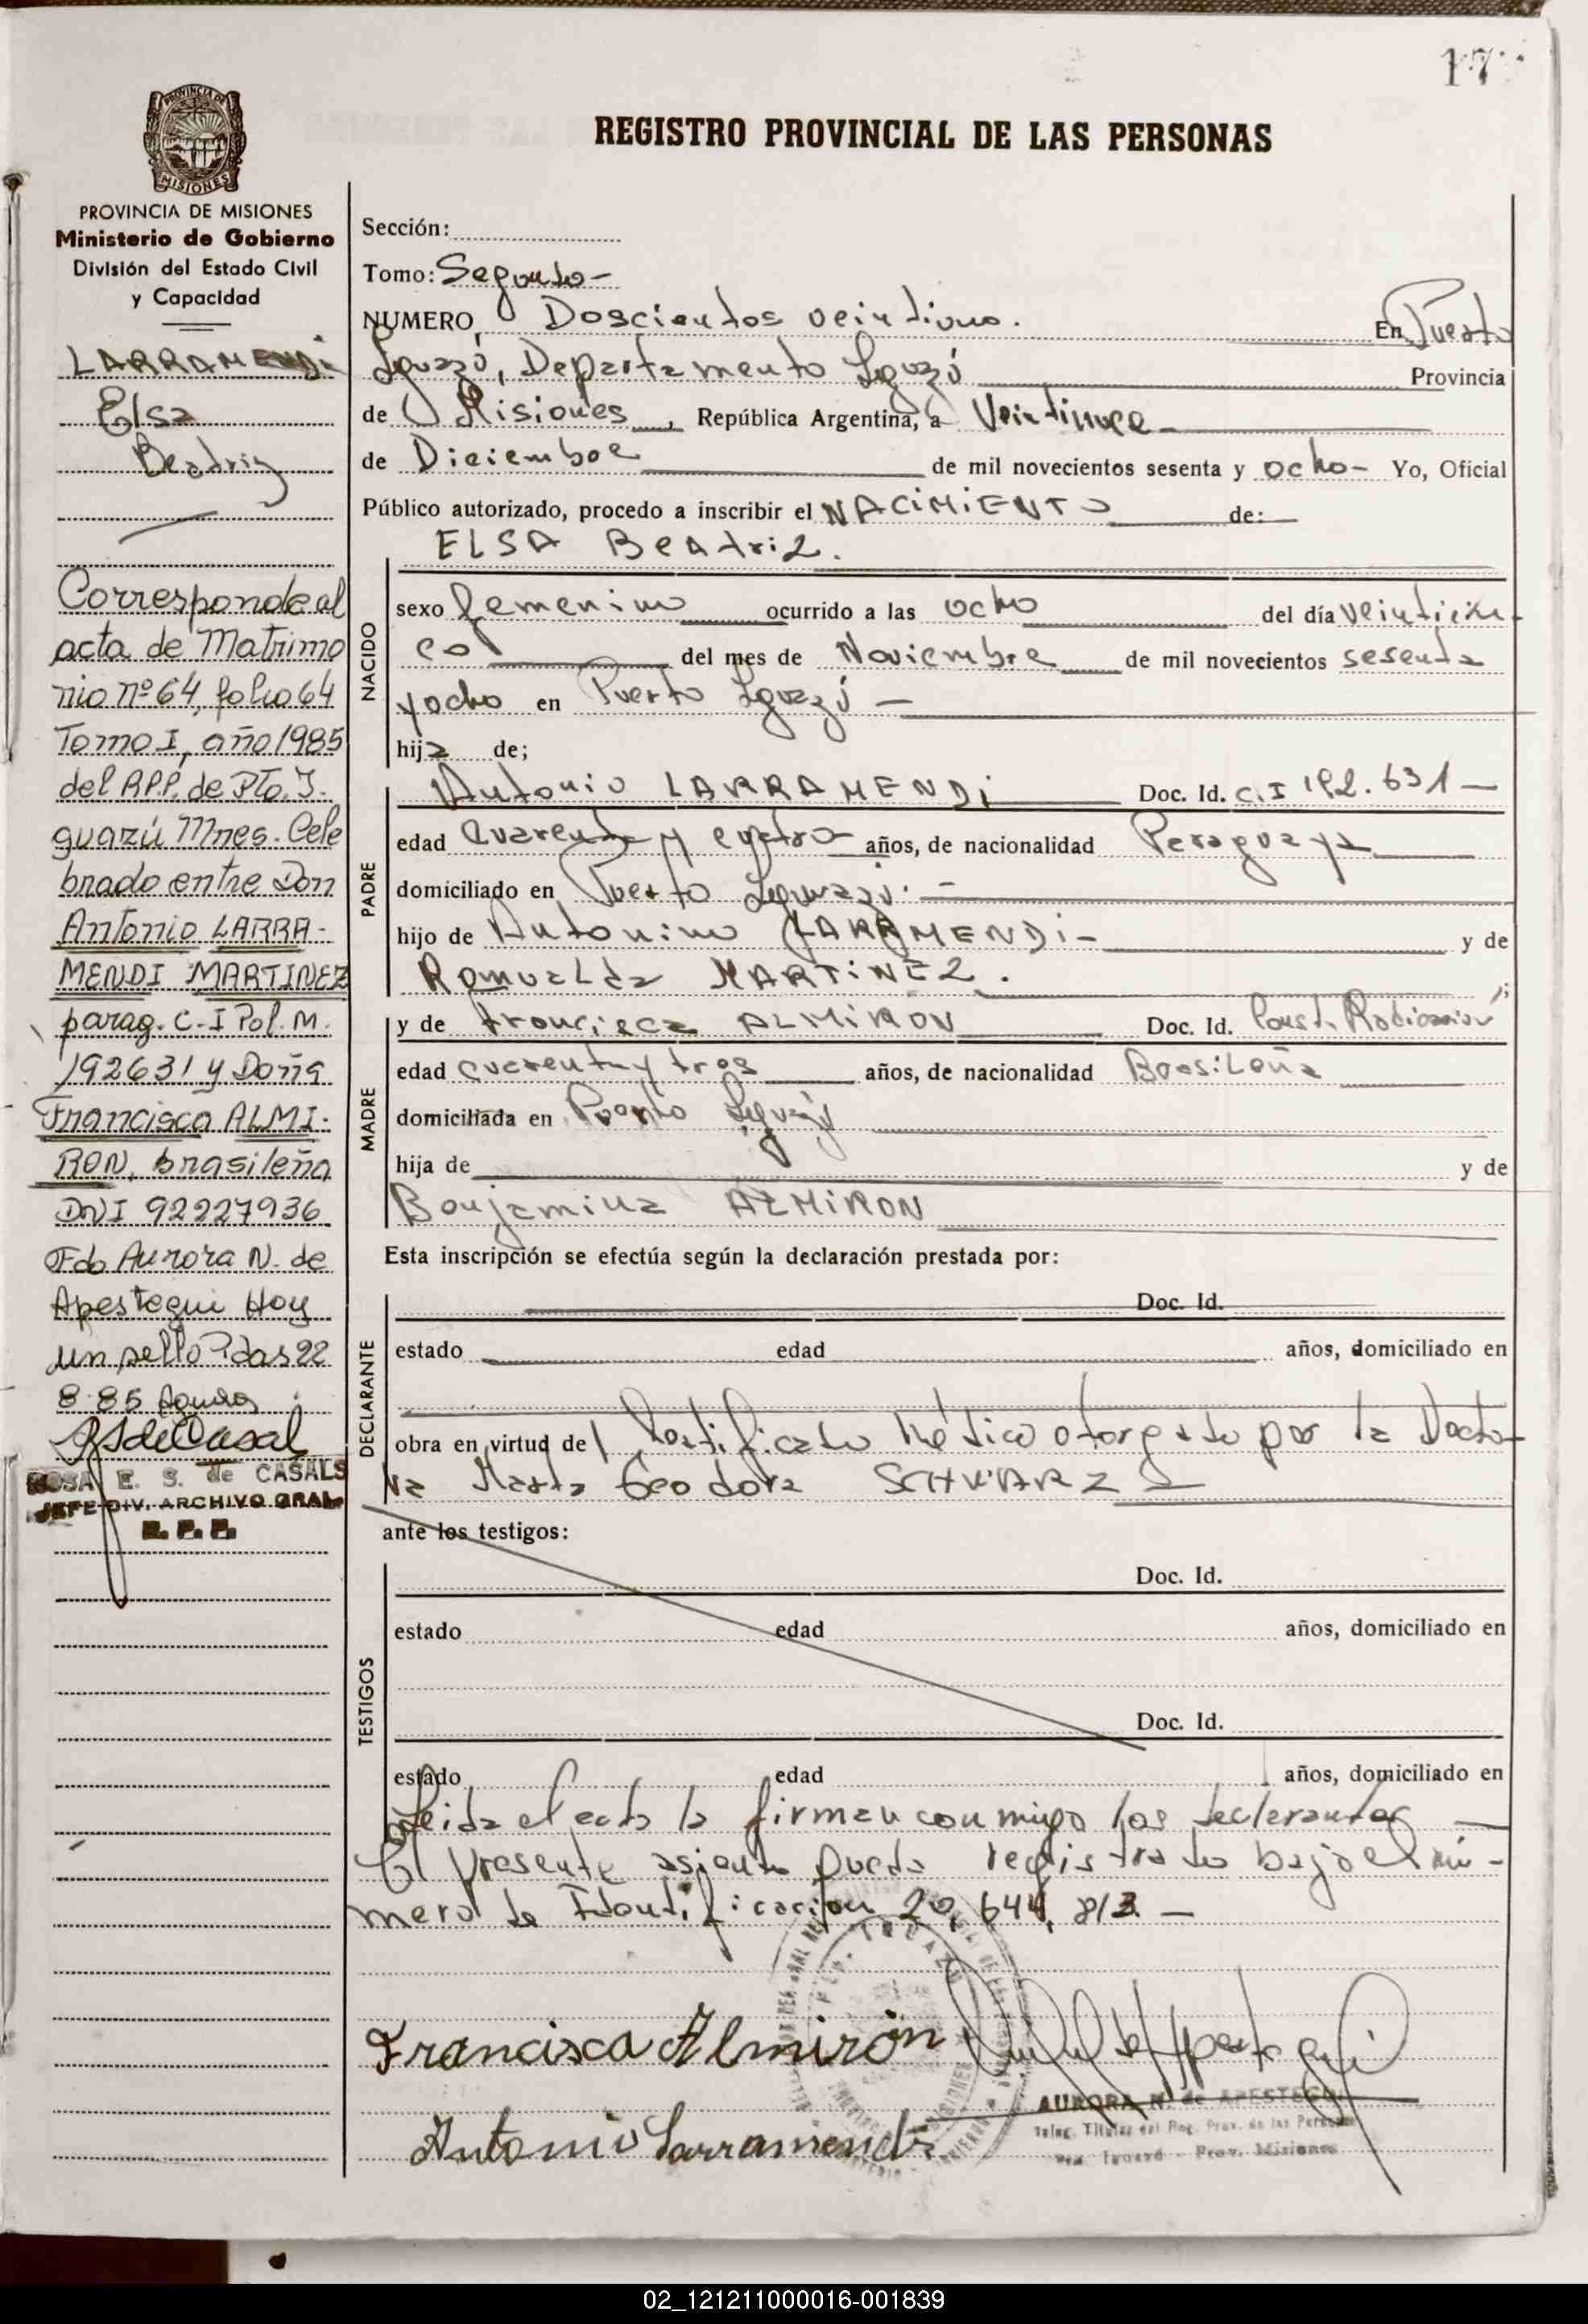 17
PROVINCIA DE
MISIONES
REGISTRO PROVINCIAL DE LAS PERSONAS
PROVINCIA DE MISIONES
Ministerio de Gobierno
División del Estado Civil
y Capacidad
LARRAMENDI
Elsa
Beatriz
Corresponde al
acta de Matrimo
nio nº 64, folio 64
Tomo I, año 1985
del R.P.P. de Pto. I.
guazú Mnes. Cele
brado entre Don
Antonio LARRA-
MENDI MARTINEZ
parag. C-I Pol. M.
192631 y Doña
Francisca ALMI-
RON, brasileña
DNI 92227936
Fdo Aurora N. de
Apestegui Hoy
un sello Pdas 22
8 85
RSdeCasals
ROSA E. S. de CASALS
JEFE DIV. ARCHIVO GRAL
R. P. P.
Sección:
Tomo: Segundo-
NUMERO Doscientos veintiuno. En Puerto
Iguazú, Departamento Iguazú Provincia
de Misiones, República Argentina, a Veintinueve
de Diciembre de mil novecientos sesenta y ocho- Yo, Oficial
Público autorizado, procedo a inscribir el NACIMIENTO de:
ELSA Beatriz.
NACIDO
sexo femenino ocurrido a las ocho del día veinticin-
co del mes de Noviembre de mil novecientos sesenta
y ocho en Puerto Iguazú -
hija de;
PADRE
Antonio LARRAMENDi Doc. Id. C.I 192.631-
edad Cuarenta y cuatro años, de nacionalidad Paraguaya
domiciliado en Puerto Iguazú. -
hijo de Antonino LARRAMENDi- y de
Romualda MARTiNEZ. ;
MADRE
y de Francisca ALMiRON Doc. Id. Const. Radicacion
edad cuarenta y tres años, de nacionalidad Brasileña
domiciliada en Puerto Iguazú
hija de y de
Benjamina ALMiRON
Esta inscripción se efectúa según la declaración prestada por:
DECLARANTE
Doc. Id.
estado edad años, domiciliado en
obra en virtud del Certificado Médico otorgado por la Docto-
ra Marta Teodora SCHVARZ
ante los testigos:
TESTIGOS
Doc. Id.
estado edad años, domiciliado en
Doc. Id.
estado edad años, domiciliado en
Leida el acta la firman conmigo los declarantes
El presente asiento queda registrado bajo el nú-
mero de Identificacion 20,644,813. -
Francisca Almirón
Antonio Larramendi
AURORA N. de APESTEGUI
Deleg. Titular del Reg. Prov. de las Personas
Pto. Iguazú - Prov. Misiones
02_121211000016-001839